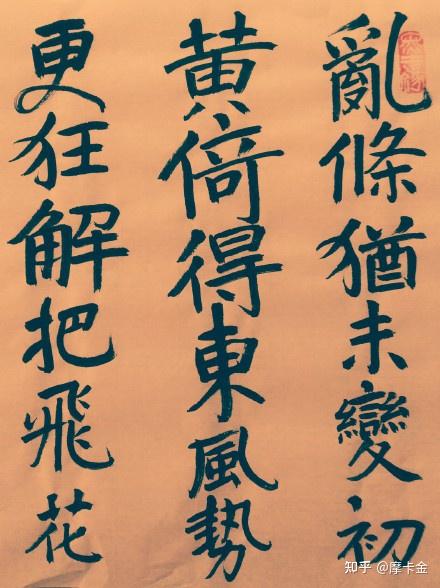 亂條猶未變初
黄倚得東風勢
更狂解把飛花
知乎 @摩卡金